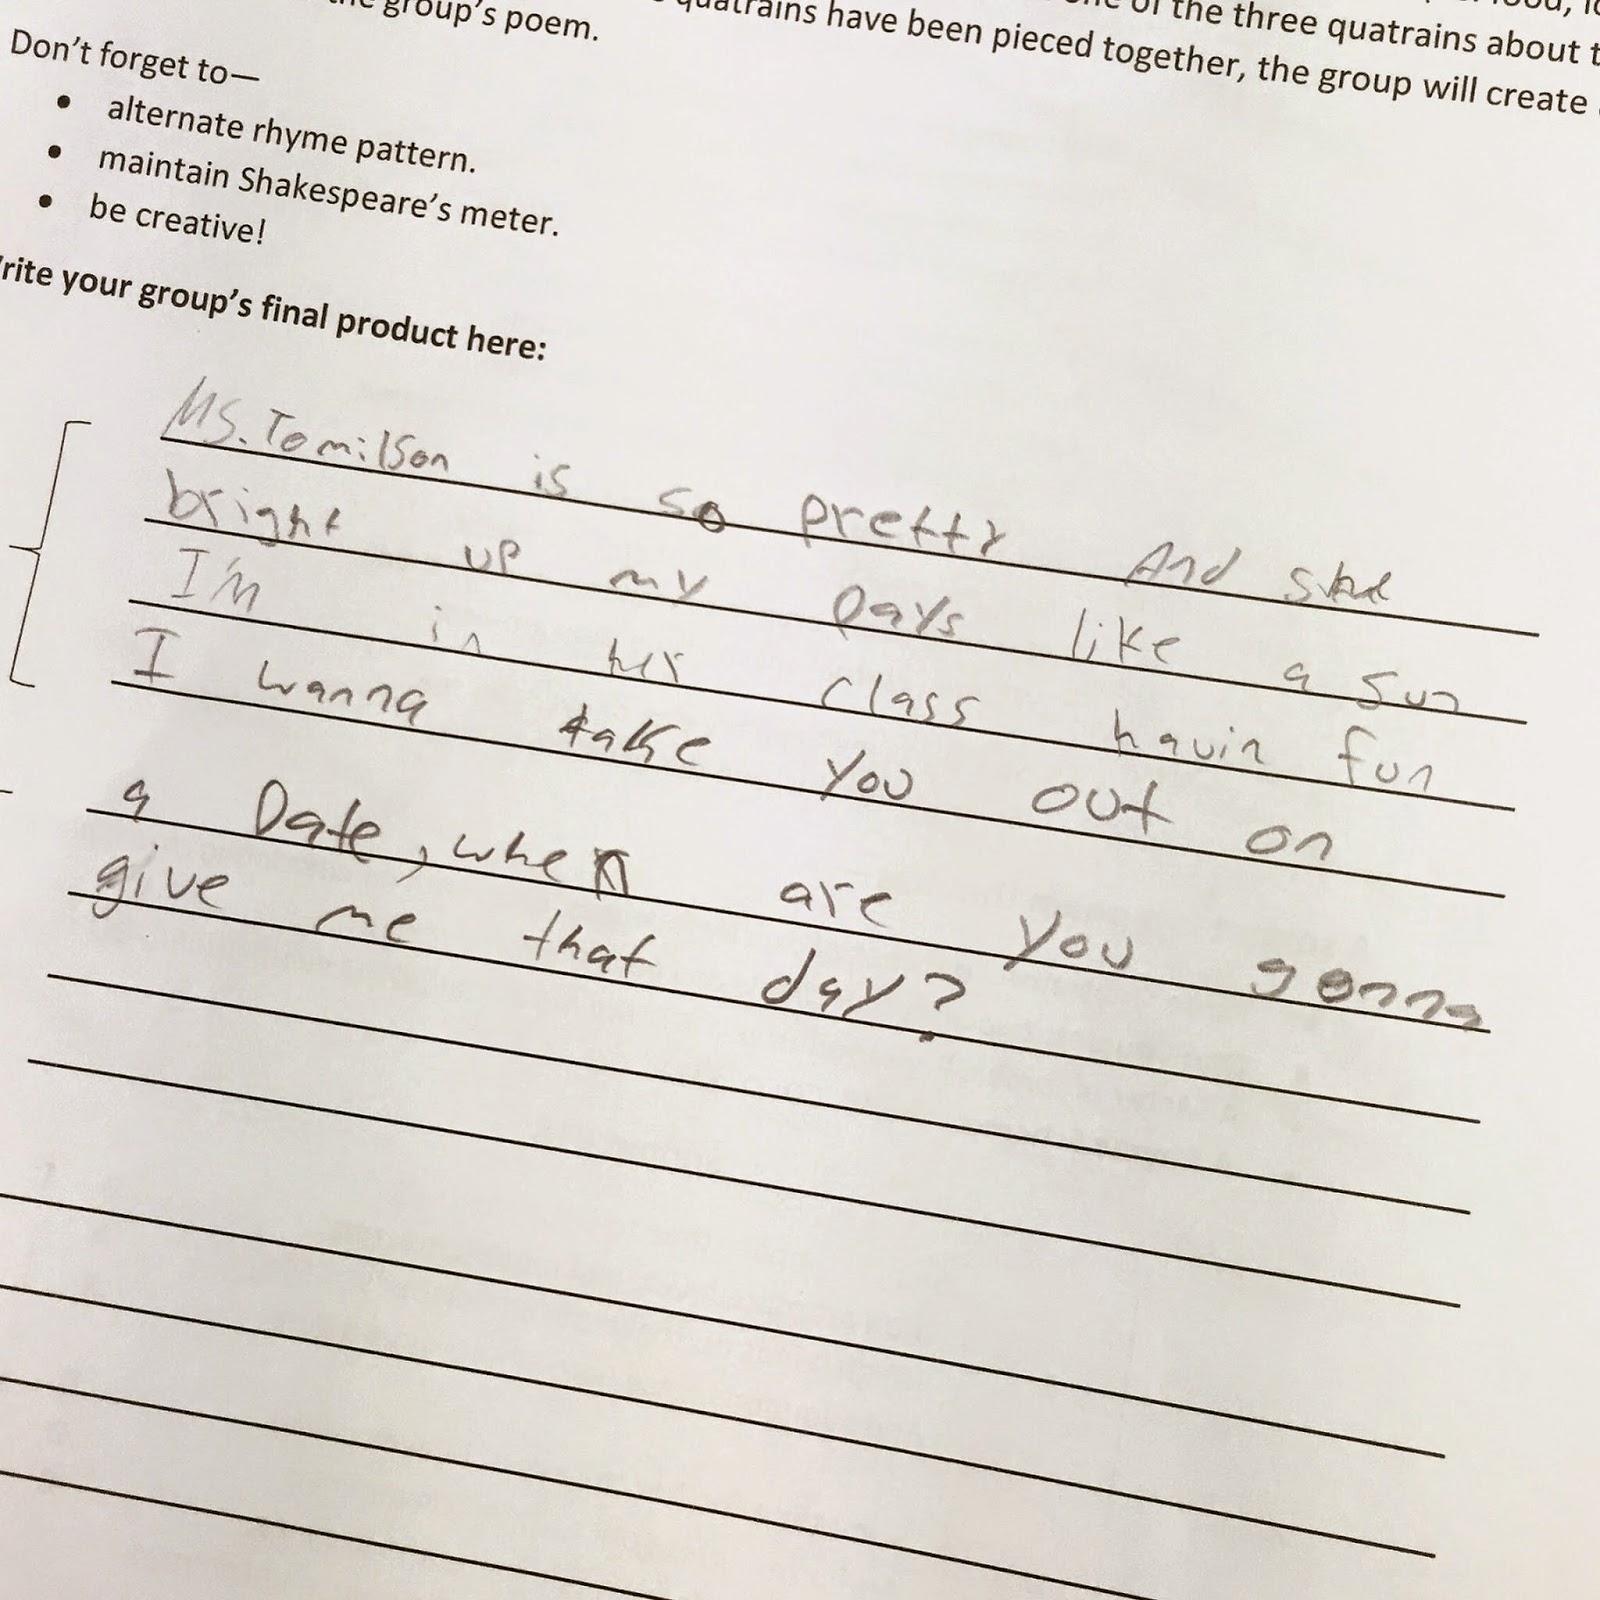 food,
one of the three quatrains about
the group's poem.
quatrains have been pieced together, the group will create
Don't forget to—
• alternate rhyme pattern.
• maintain Shakespeare's meter.
• be creative!
rite your group's final product here:
MS. Tomilson is so pretty And she
bright up my Days like a sun
I'm in her class havin fun
I wanna take you out on
a Date, when are you gonna
give me that day?